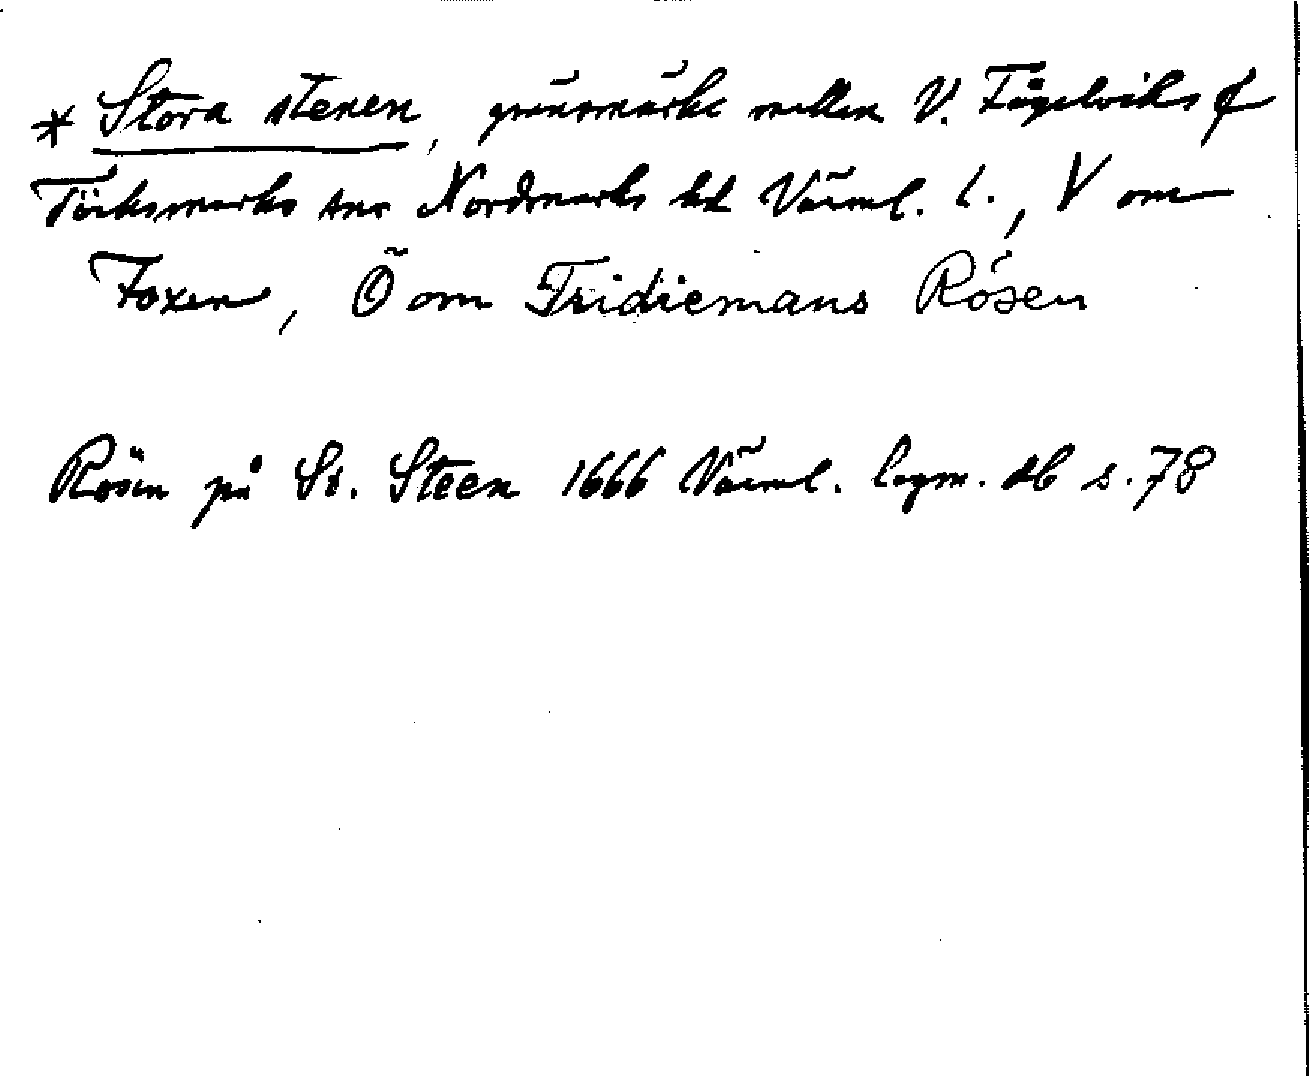 * Stora stenen, gränsmärke mellan V. Fågelviks o
Töcksmarks snr Nordmarks hd Värml. l., V om
Foxen, Ö om Tridiemans Rösen
Rösen på St. Steen 1666 Värml. lagm. db s. 78